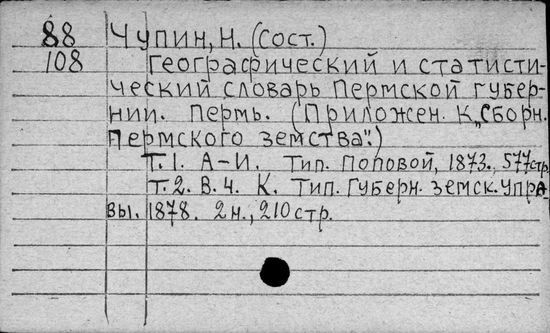 88 Чупин, Н. (сост.)
108 Географический и статисти-
ческий словарь Пермской губер-
нии. Пермь. (Приложен. К „Сборн.
Пермского земства".)
Т.1. А-И. Тип. Поповой, 1873., 577стр.
Т.2. В.4. К. Тип. Губерн. земск. упра-
вы. 1878. 2н., 210 стр.